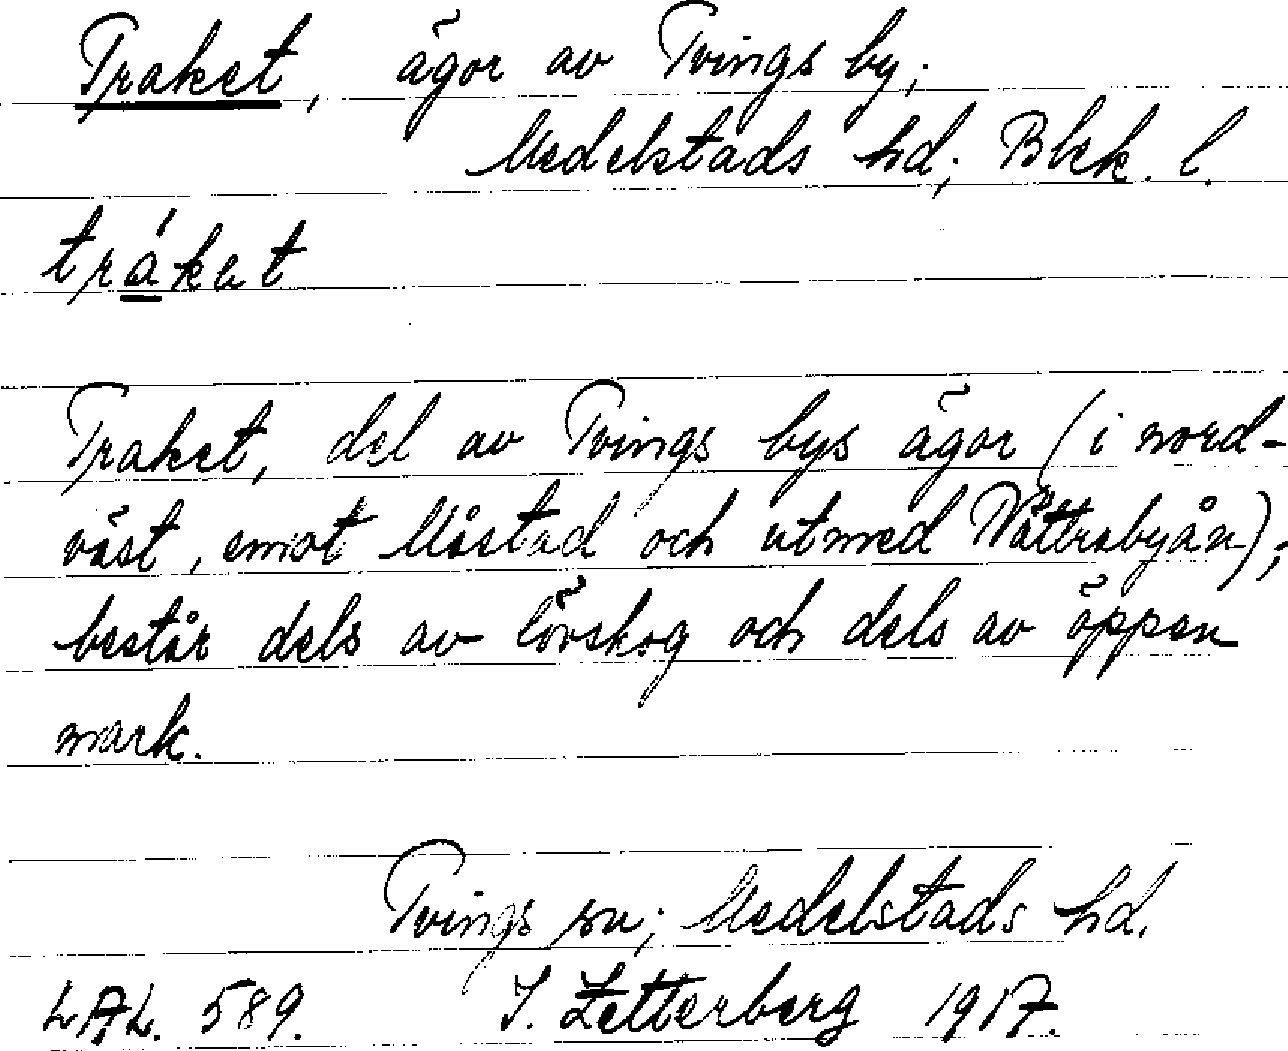 Traket, ägor av Tvings by;
Medelstads hd; Blek. l.
tráket
Traket, del av Tvings bys ägor (i nord-
väst, emot Måstad och utmed Nättrabyån);
består dels av lövskog och dels av öppen
mark.
Tvings sn; Medelstads hd.
LAL. 589. I. Zetterberg 1917.